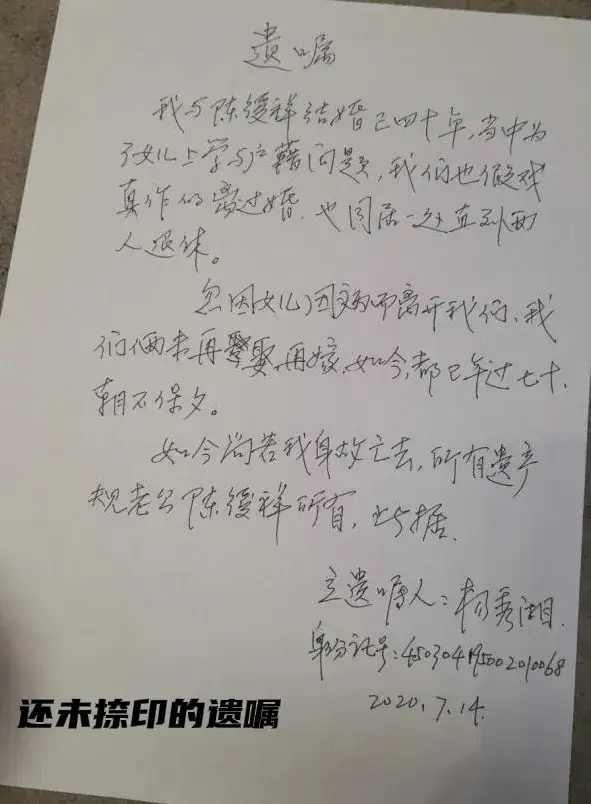 遗嘱
我与陈绶祥结婚已四十年,当中为
了女儿上学与户籍问题,我们也假戏
真作的离过婚,也同居一处直到两
人退休。
忽因女儿因病而离开我们,我
们俩未再娶再嫁,如今,都已年过七十,
朝不保夕。
如今倘若我身故亡去,所有遗产
规老公陈绶祥所有,此据.
立遗嘱人:杨秀湘.
身份证号:450304195002010068
2020.7.14.
还未捺印的遗嘱